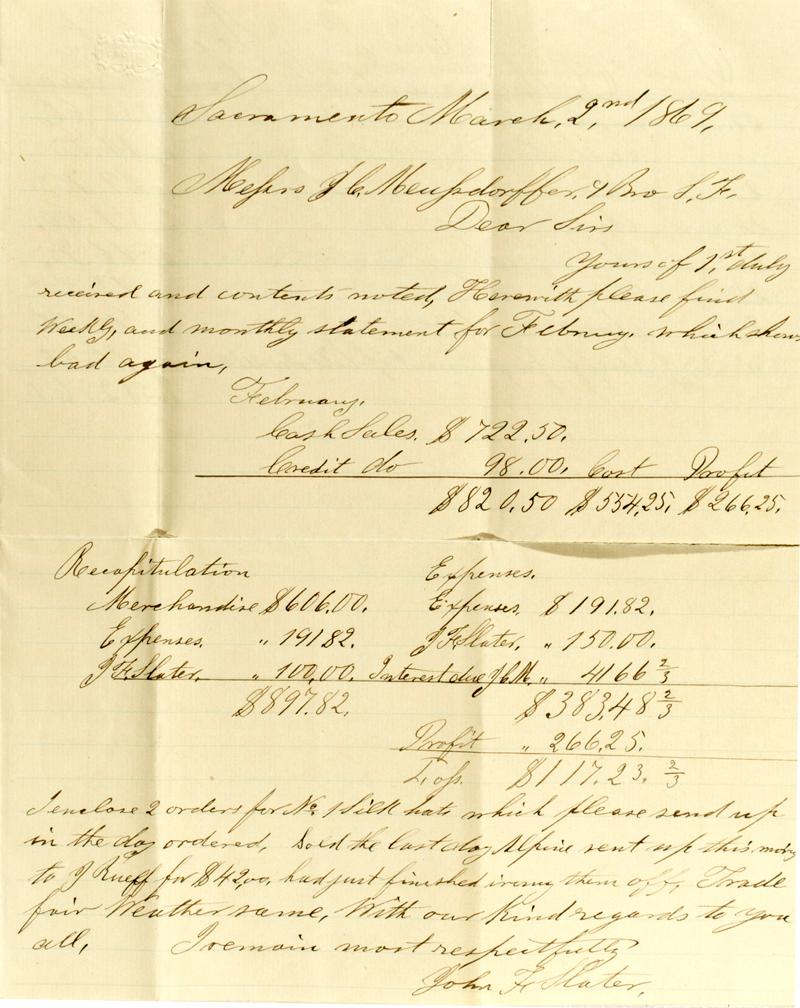 Sacramento March, 2,nd 1869,
Messrs J C. Meussdorffer, & Bro S. F.
Dear Sirs
Yours of 1,st duly
received and contents noted, Herewith please find
Weekly, and monthly statement for Februay. which shows
bad again,
February.
Cash Sales. $ 722.50.
Credit do 98.00. Cost Profit
$820.50 $554,25, $266,25,
Recapitulation Expenses.
Merchandise $606.00. Expenses. $191.82.
Expenses. " 191 82. J F Slater. " 150.00.
J F Slater. " 100,00. Interest due J C. M. " 41 66 2/3
$897.82. $383,48 2/3
Profit " 266,25.
Loss. $117.23. 2/3
I enclose 2 orders for No. 1 Silk hats which please send up
in the day ordered, Sold the last day Alpine sent up this morng
to J Rueff for $42,00, had just finished ironing them off, Trade
fair Weather same, With our kind regards to you
all, I remain most respectfully
John F. Slater,